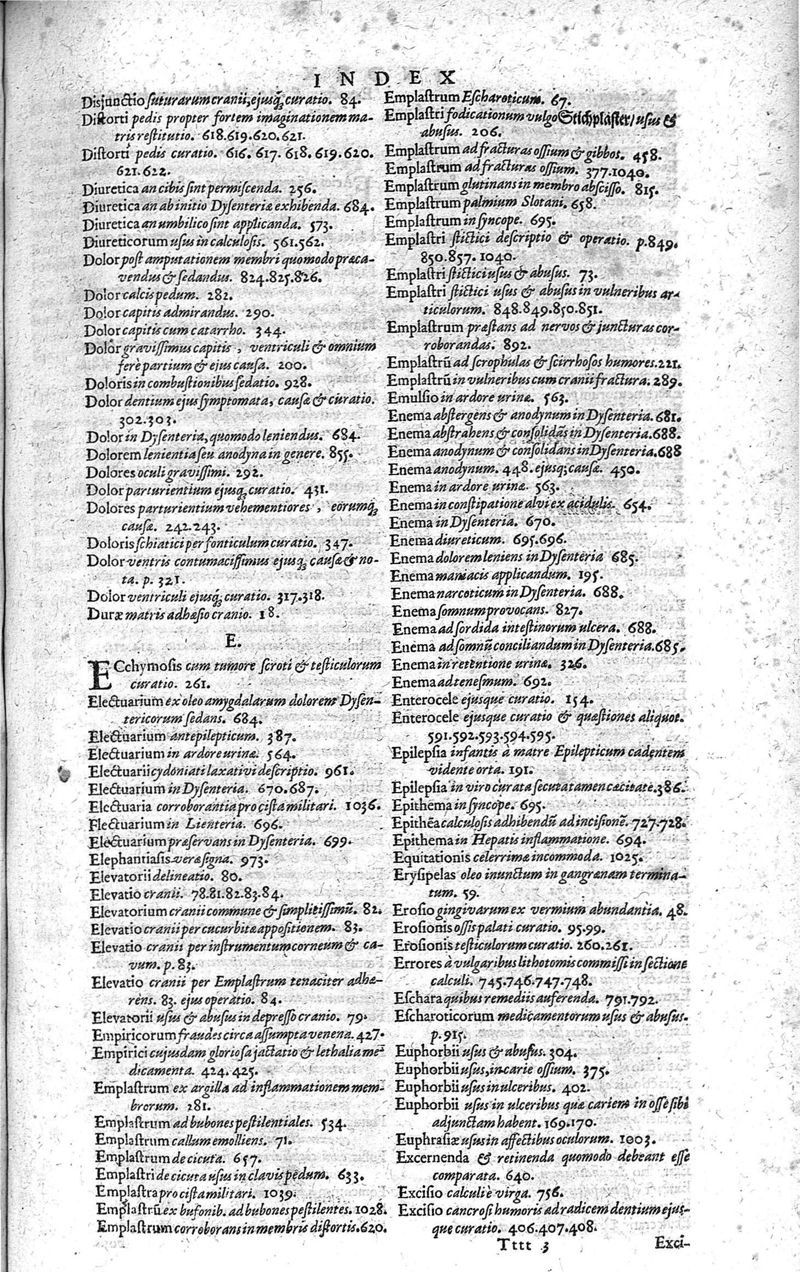 INDEX
Disjunctio suturarum cranii, ejusq; curatio. 84.
Distorti pedis propter fortem imaginationem ma-
tris restitutio. 618.619.620.621.
Distorti pedis curatio. 616. 617. 618. 619. 620.
621.622.
Diuretica an cibis sint permiscenda. 256.
Diuretica an ab initio Dysenteriæ exhibenda. 684.
Diuretica an umbilico sint applicanda. 573.
Diureticorum usus in calculosis. 561.562.
Dolor post amputationem membri quomodo præca-
vendus & sedandus. 824.825.826.
Dolor calcis pedum. 282.
Dolor capitis admirandus. 290.
Dolor capitis cum catarrho. 344.
Dolor gravissimus capitis, ventriculi & omnium
ferè partium & ejus causa. 200.
Doloris in combustionibus sedatio. 928.
Dolor dentium ejus symptomata, causæ & curatio.
302.303.
Dolor in Dysenteria, quomodo leniendus. 684.
Dolorem lenientia seu anodyna in genere. 855.
Dolores oculi gravissimi. 292.
Dolor parturientium ejusq; curatio. 431.
Dolores parturientium vehementiores, eorumq;
causæ. 242.243.
Doloris schiatici per fonticulum curatio. 347.
Dolor ventris contumacissimus ejusq; causæ & no-
ta. p. 321.
Dolor ventriculi ejusq; curatio. 317.318.
Duræ matris adhæsio cranio. 18.
E.
ECchymosis cum tumore scroti & testiculorum
curatio. 261.
Electuarium ex oleo amygdalarum dolorem Dysen-
tericorum sedans. 684.
Electuarium antepilepticum. 387.
Electuarium in ardore urinæ. 564.
Electuarii cydoniati laxativi descriptio. 961.
Electuarium in Dysenteria. 670.687.
Electuaria corroborantia pro cista militari. 1036.
Electuarium in Lienteria. 696.
Electuarium præservans in Dysenteria. 699.
Elephantiasis vera signa. 973.
Elevatorii delineatio. 80.
Elevatio cranii. 78.81.82.83.84.
Elevatorium cranii commune & simplitissimũ. 82.
Elevatio cranii per cucurbitæ appositionem. 83.
Elevatio cranii per instrumentum corneum & ca-
vum. p. 83.
Elevatio cranii per Emplastrum tenaciter adhæ-
rens. 83. ejus operatio. 84.
Elevatorii usus & abusus in depresso cranio. 79.
Empiricorum fraudes circa assumpta venena. 427.
Empirici cujusdam gloriosa jactatio & lethalia me-
dicamenta. 424.425.
Emplastrum ex argilla ad inflammationem mem-
brorum. 281.
Emplastrum ad bubones pestilentiales. 534.
Emplastrum callum emolliens. 71.
Emplastrum de cicuta. 657.
Emplastri de cicuta usus in clavis pedum. 633.
Emplastra pro cista militari. 1039.
Emplastrũ ex bufonib. ad bubones pestilentes. 1028.
Emplastrum corroborans in membris distortis. 620.
Emplastrum Escharoticum. 67.
Emplastri fodicationum vulgo Stichpflaster/ usus &
abusus. 206.
Emplastrum ad fracturas ossium & gibbos. 458.
Emplastrum ad fracturas ossium. 377.1040.
Emplastrum glutinans in membro abscisso. 815.
Emplastrum palmium Slotani. 658.
Emplastrum in syncope. 695.
Emplastri stictici descriptio & operatio. p. 849.
850.857.1040.
Emplastri stictici usus & abusus. 73.
Emplastri stictici usus & abusus in vulneribus ar-
ticulorum. 848.849.850.851.
Emplastrum præstans ad nervos & juncturas cor-
roborandas. 892.
Emplastrũ ad scrophulas & scirrhosos humores. 221.
Emplastrũ in vulneribus cum cranii fractura. 289.
Emulsio in ardore urinæ. 563.
Enema abstergens & anodynum in Dysenteria. 681.
Enema abstrahens & consolidãs in Dysenteria. 688.
Enema anodynum & consolidans in Dysenteria. 688
Enema anodynum. 448. ejusq; causæ. 450.
Enema in ardore urinæ. 563.
Enema in constipatione alvi ex acidulis. 654.
Enema in Dysenteria. 670.
Enema diureticum. 695.696.
Enema dolorem leniens in Dysenteria 685.
Enema maniacis applicandum. 195.
Enema narcoticum in Dysenteria. 688.
Enema somnum provocans. 827.
Enema ad sordida intestinorum ulcera. 688.
Enema ad somnũ conciliandum in Dysenteria. 685.
Enema in retentione urinæ. 326.
Enema ad tenesmum. 692.
Enterocele ejusque curatio. 154.
Enterocele ejusque curatio & quæstiones aliquot.
591.592.593.594.595.
Epilepsia infantis à matre Epilepticum cadentem
vidente orta. 191.
Epilepsia in viro curata secuta tamen cæcitate. 386.
Epithema in syncope. 695.
Epithẽa calculosis adhibendũ ad incisionẽ. 727.728.
Epithema in Hepatis inflammatione. 694.
Equitationis celerrimæ incommoda. 1025.
Erysipelas oleo inunctum in gangrænam termina-
tum. 59.
Erosio gingivarum ex vermium abundantia. 48.
Erosionis ossis palati curatio. 95.99.
Erosionis testiculorum curatio. 260.261.
Errores à vulgaribus lithotomis commissi in sectione
calculi. 745.746.747.748.
Eschara quibus remediis auferenda. 791.792.
Escharoticorum medicamentorum usus & abusus.
p. 915.
Euphorbii usus & abusus. 304.
Euphorbii usus, in carie ossium. 375.
Euphorbii usus in ulceribus. 402.
Euphorbii usus in ulceribus quæ cariem in osse sibi
adjunctam habent. 169.170.
Euphrasiæ usus in affectibus oculorum. 1003.
Excernenda & retinenda quomodo debeant esse
comparata. 640.
Excisio calculi è virga. 756.
Excisio cancrosi humoris ad radicem dentium ejus-
que curatio. 406.407.408.
Tttt 3
Exci-